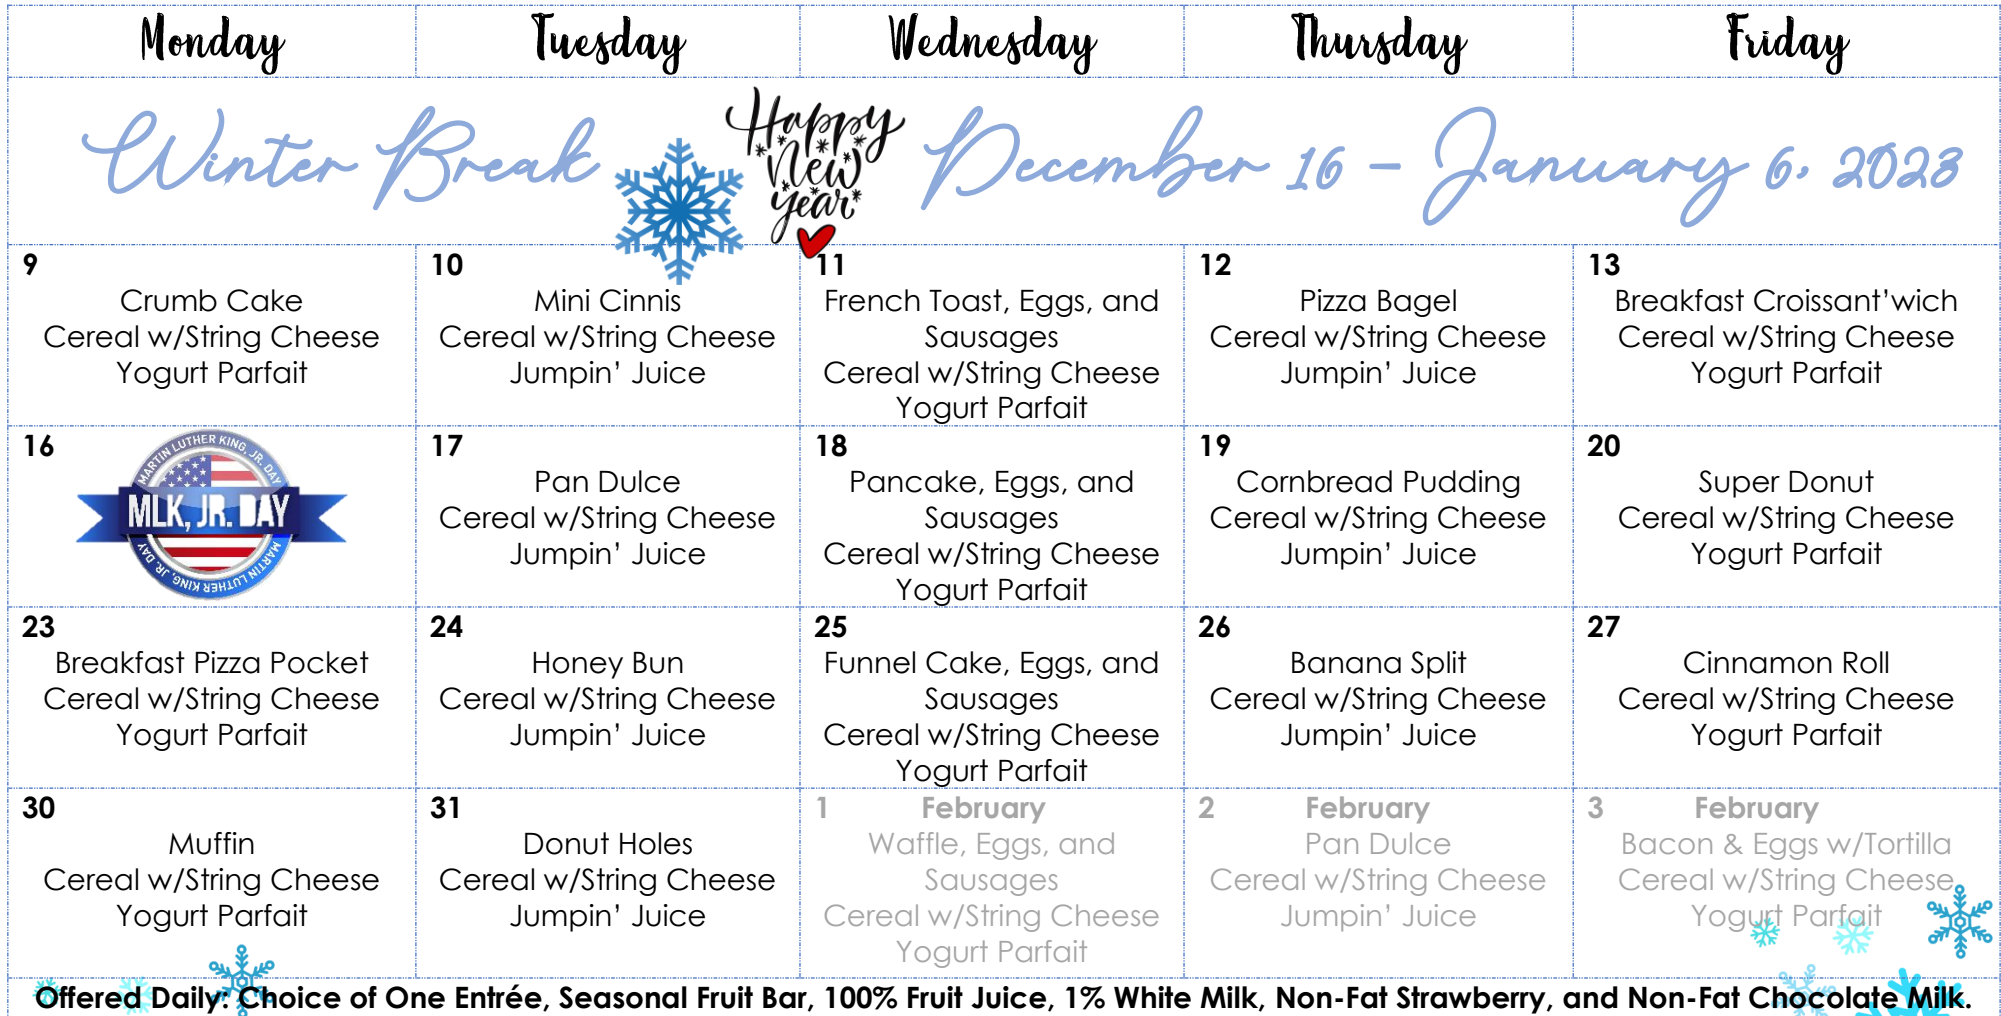 Monday
Tuesday
Wednesday
Thursday
Friday
Winter Break
Happy
New
Year
December 16 – January 6, 2023
9
Crumb Cake
Cereal w/String Cheese
Yogurt Parfait
10
Mini Cinnis
Cereal w/String Cheese
Jumpin’ Juice
11
French Toast, Eggs, and
Sausages
Cereal w/String Cheese
Yogurt Parfait
12
Pizza Bagel
Cereal w/String Cheese
Jumpin’ Juice
13
Breakfast Croissant’wich
Cereal w/String Cheese
Yogurt Parfait
16
MARTIN LUTHER KING, JR. DAY
MLK, JR. DAY
MARTIN LUTHER KING, JR. DAY
17
Pan Dulce
Cereal w/String Cheese
Jumpin’ Juice
18
Pancake, Eggs, and
Sausages
Cereal w/String Cheese
Yogurt Parfait
19
Cornbread Pudding
Cereal w/String Cheese
Jumpin’ Juice
20
Super Donut
Cereal w/String Cheese
Yogurt Parfait
23
Breakfast Pizza Pocket
Cereal w/String Cheese
Yogurt Parfait
24
Honey Bun
Cereal w/String Cheese
Jumpin’ Juice
25
Funnel Cake, Eggs, and
Sausages
Cereal w/String Cheese
Yogurt Parfait
26
Banana Split
Cereal w/String Cheese
Jumpin’ Juice
27
Cinnamon Roll
Cereal w/String Cheese
Yogurt Parfait
30
Muffin
Cereal w/String Cheese
Yogurt Parfait
31
Donut Holes
Cereal w/String Cheese
Jumpin’ Juice
1 February
Waffle, Eggs, and
Sausages
Cereal w/String Cheese
Yogurt Parfait
2 February
Pan Dulce
Cereal w/String Cheese
Jumpin’ Juice
3 February
Bacon & Eggs w/Tortilla
Cereal w/String Cheese
Yogurt Parfait
Offered Daily: Choice of One Entrée, Seasonal Fruit Bar, 100% Fruit Juice, 1% White Milk, Non-Fat Strawberry, and Non-Fat Chocolate Milk.